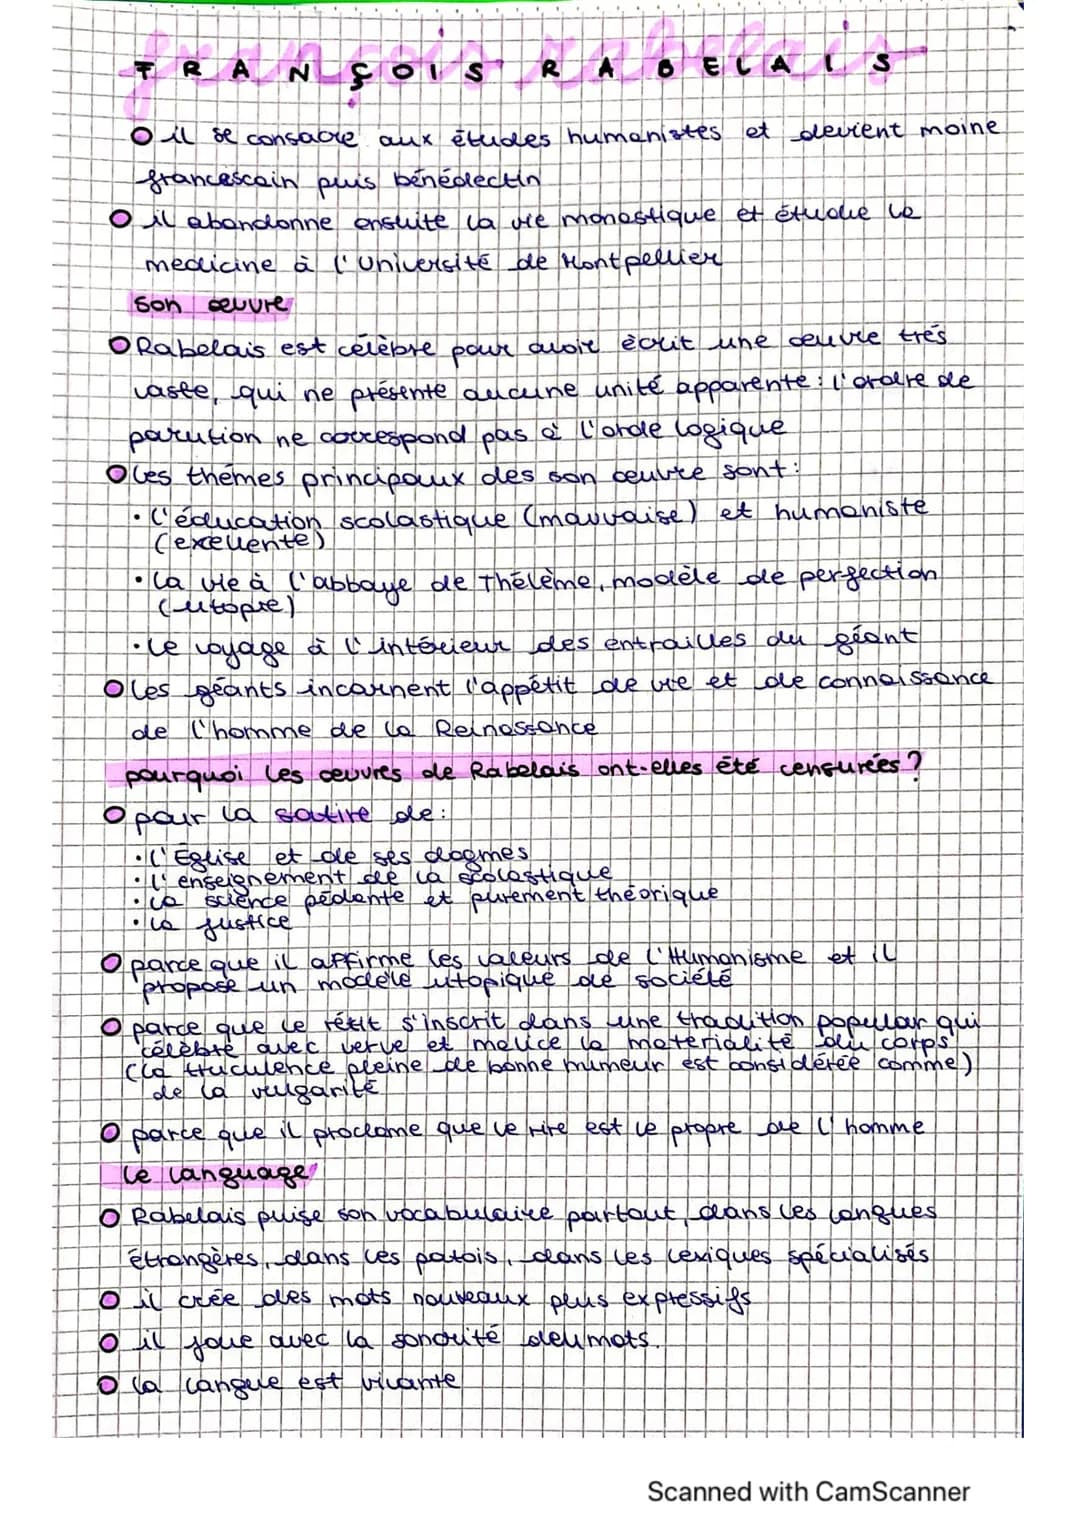 FRANÇOIS RABELAIS
il se consacre aux études humanistes et devient moine
francescain puis bénédectin
il abandonne ensuite la vie monastique et étudie la
medicine à l'Université de Montpellier
son œuvre
Rabelais est célèbre pour avoir écrit une œuvre trés
vaste, qui ne présente aucune unité apparente: l'ordre de
parution ne correspond pas à l'orde logique
les thémes principaux des son œuvre sont:
• l'éducation scolastique (mauvaise) et humaniste
(exellente)
• la vie à l'abbaye de Thélème, modèle de perfection
(utopie)
• le voyage à l'intérieur des entrailles du géant
les géants incarnent l'appétit de vie et de connaissance
de l'homme de la Reinassance
pourquoi les œuvres de Rabelais ont-elles été censurées?
pour la satire de:
• l'Église et de ses dogmes
• l'enseignement de la scolastique
• la science pédante et purement théorique
• la justice
parce que il affirme les valeurs de l'Humanisme et il
propose un modèle utopique de société
parce que le récit s'inscrit dans une tradition populair qui
célèbre avec verve et malice la materialité du corps
(la truculence pleine de bonne humeur est considérée comme)
de la vulgarité
parce que il proclame que le rire est le propre de l'homme
le language
Rabelais puise son vocabulaire partout, dans les langues
étrangères, dans les patois, dans les lexiques spécialisés
il crée des mots nouveaux plus expressifs
il joue avec la sonorité deu mots.
la langue est vivante
Scanned with CamScanner